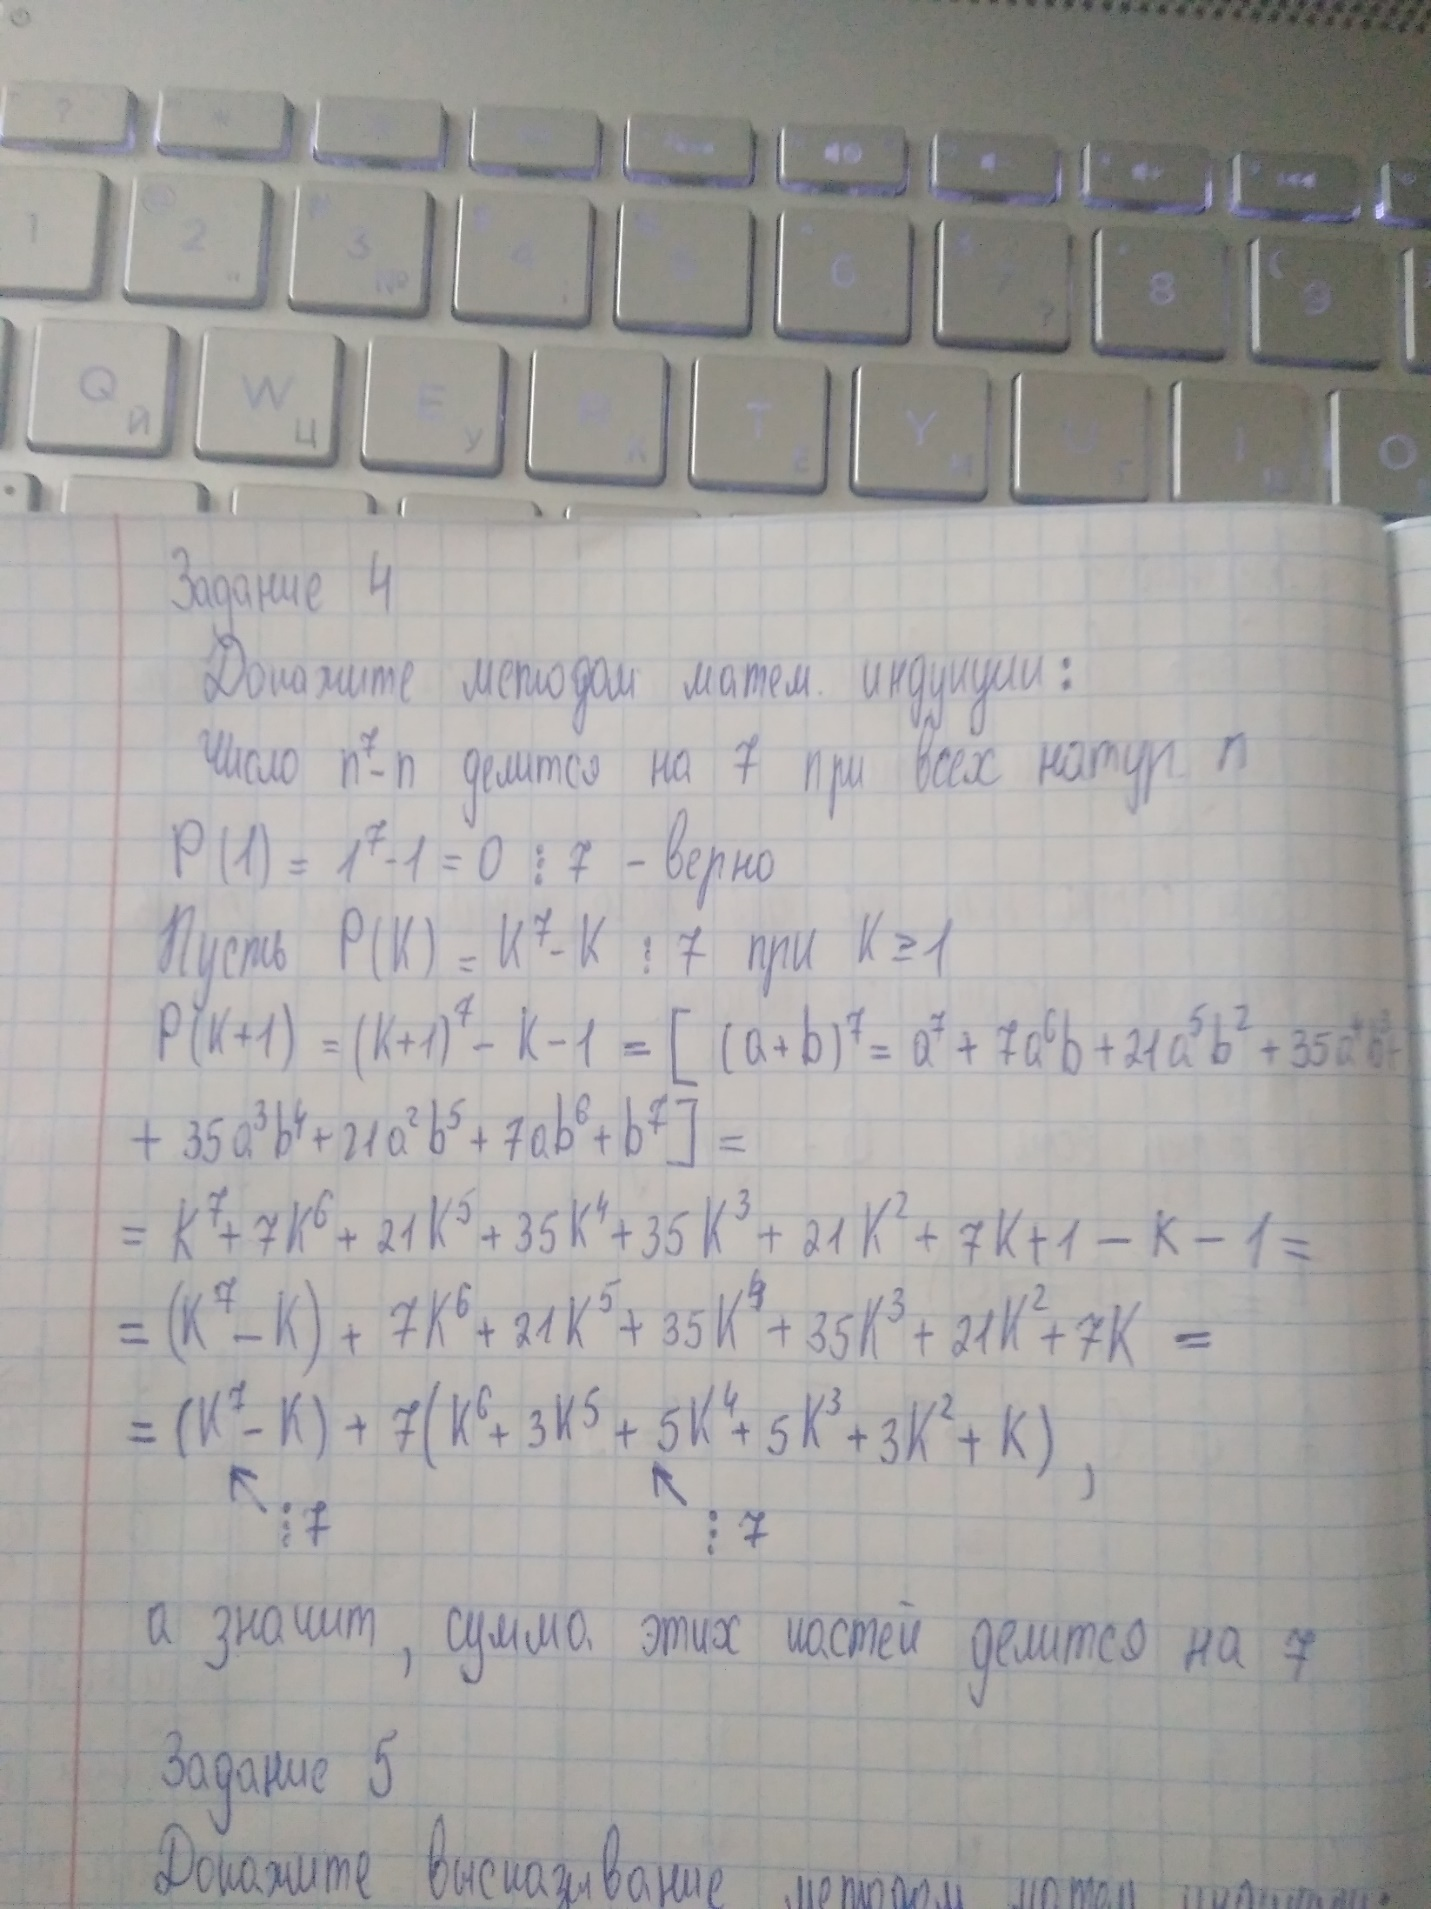 1 2 3 4 6 7 8 9
Q Й W Ц E У R К T Е Y Н U Г I O
Задание 4
Докажите методом матем. индукции:
Число n⁷-n делится на 7 при всех натур. n
P(1) = 1⁷-1 = 0 ⋮ 7 - верно
Пусть P(K) = K⁷-K ⋮ 7 при K ≥ 1
P(K+1) = (K+1)⁷ - K - 1 = [ (a+b)⁷ = a⁷ + 7a⁶b + 21a⁵b² + 35a⁴b³ +
+ 35a³b⁴ + 21a²b⁵ + 7ab⁶ + b⁷ ] =
= K⁷ + 7K⁶ + 21K⁵ + 35K⁴ + 35K³ + 21K² + 7K + 1 - K - 1 =
= (K⁷ - K) + 7K⁶ + 21K⁵ + 35K⁴ + 35K³ + 21K² + 7K =
= (K⁷ - K) + 7(K⁶ + 3K⁵ + 5K⁴ + 5K³ + 3K² + K) ,
⋮ 7 ⋮ 7
а значит, сумма этих частей делится на 7
Задание 5
Докажите высказывание методом матем индукции: